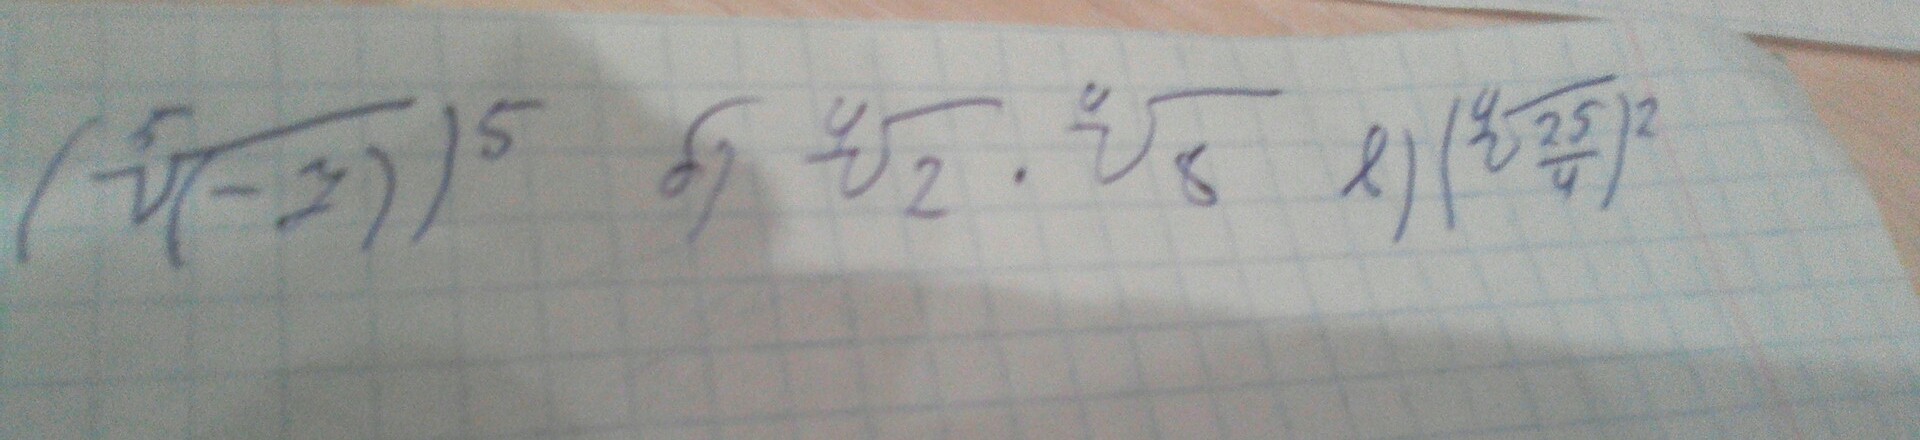 (⁵√(-7))⁵ б) ⁴√2 · ⁴√8 в) (⁴√25/4)²